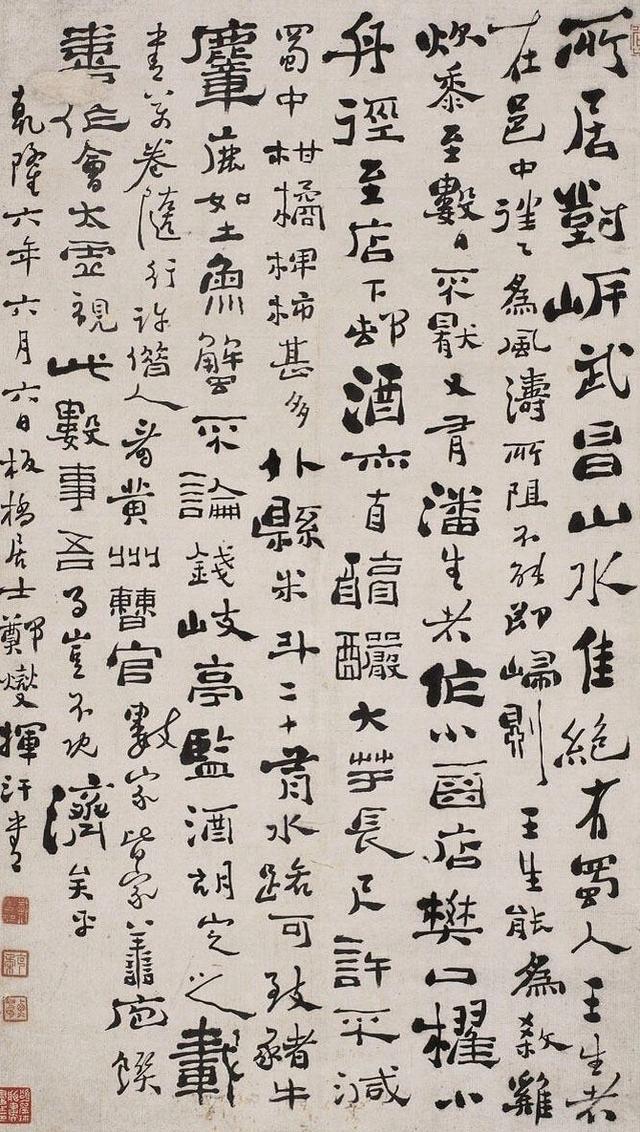 所居對岸武昌山水佳絕有蜀人王生者
在邑中往々為風濤所阻不能即歸則王生能為殺雞
炊黍至數日不厭又有潘生者作小酒店樊口櫂小
舟徑至店下邨酒亦自醇釅大芋長尺許不減
蜀中柑橘椑柿甚多外縣米斗二十有水路可致豬牛
麞鹿如土魚蟹不論錢岐亭監酒胡定之載
書萬卷隨行許借人看黃州曹官數家皆家善庖饌
喜作會太虛視此數事吾事豈不既濟矣乎
乾隆六年六月六日板橋居士鄭燮揮汗書